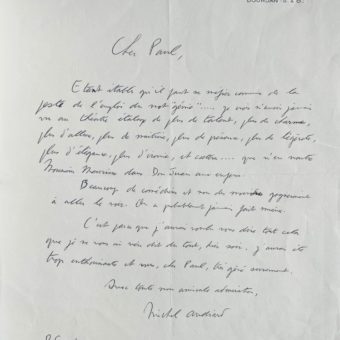 DOURDAN
Cher Paul,
Etant établi qu'il faut se méfier comme de la
peste de l'emploi du mot "génie"..... je crois n'avoir jamais
vu au théâtre étalage de plus de talent, plus de charme,
plus d'allure, plus de maîtrise, plus de présence, plus de légèreté,
plus d'élégance, plus d'ironie, et caetera.... que n'en montre
Monsieur Meurisse dans Don Juan aux enfers.
Beaucoup de comédiens et non des moindres gagneraient
à aller le voir. On a probablement jamais fait mieux.
C'est parce que j'aurais voulu vous dire tout cela
que je ne vous ai rien dit du tout, hier soir. J'aurais été
trop enthousiaste et vous, cher Paul, très gêné sûrement.
Avec toute mon amicale admiration,
Michel Audiard